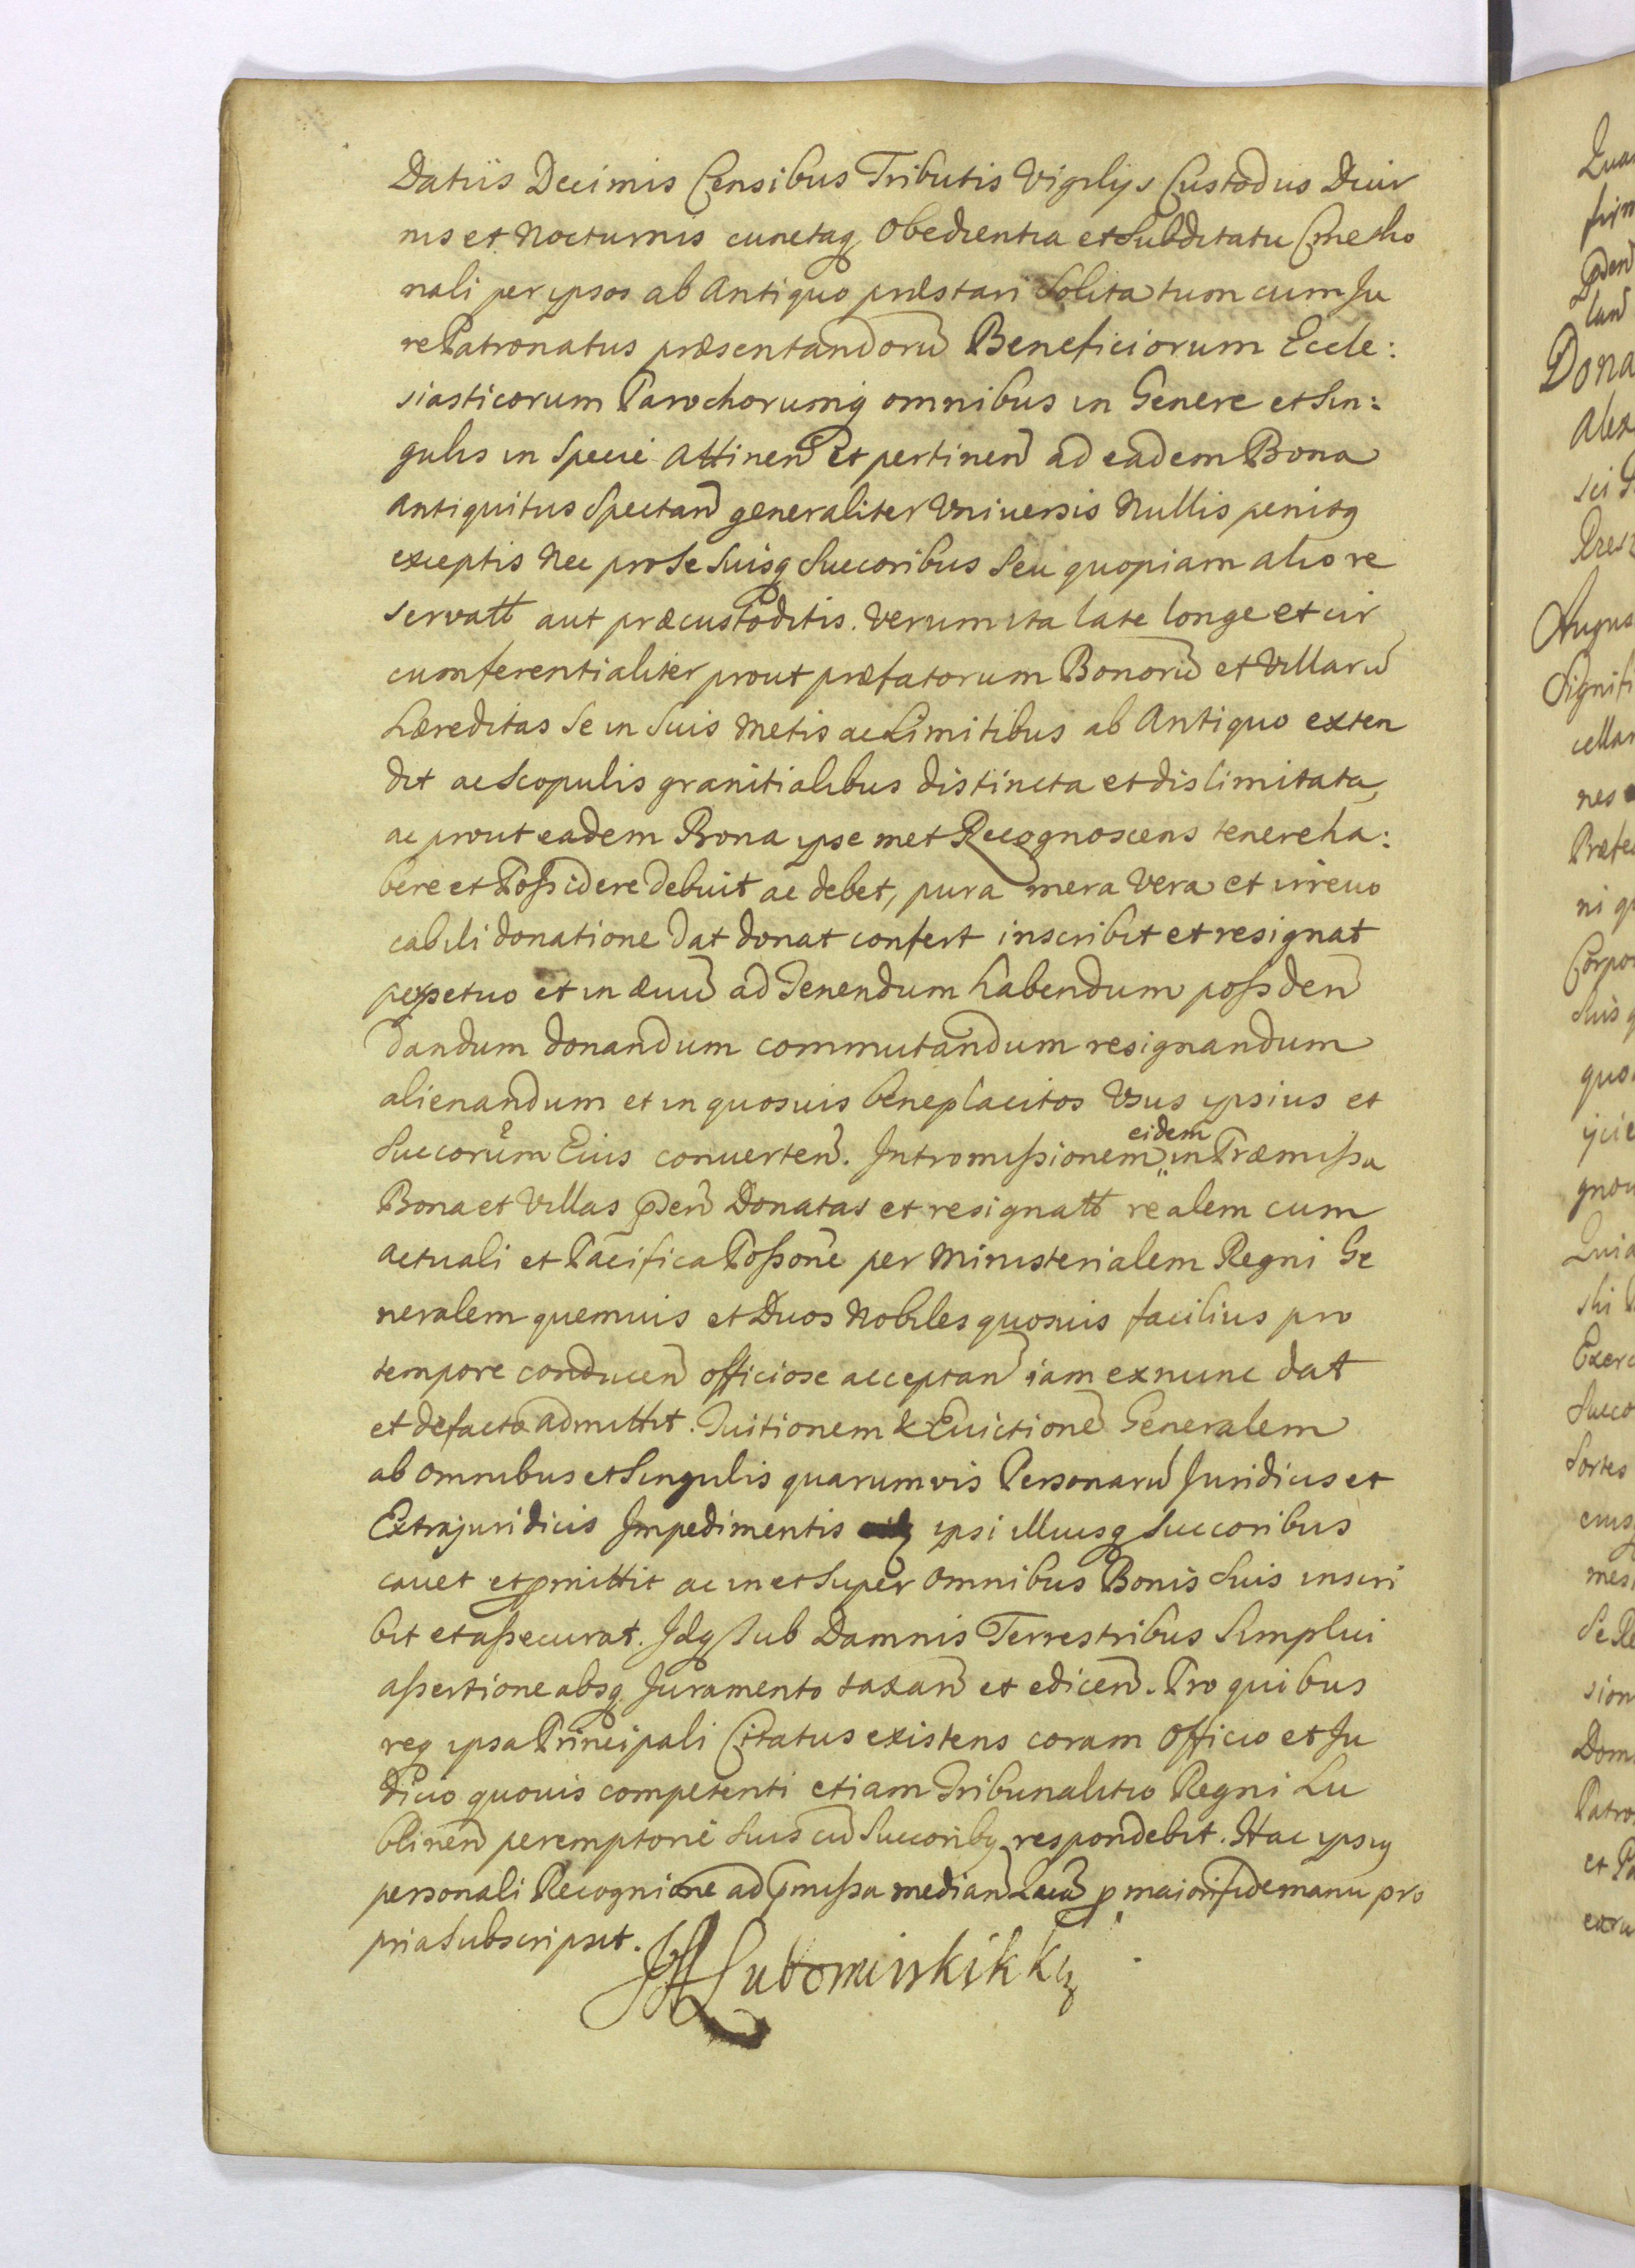 Datiis Decimis Censibus Tributis Vigilijs Custodiis Diur
nis et Nocturnis cunctaq Obedientia et Subditatu Cmetho
nali per ipsos ab Antiquo præstari Solita tum cum Ju
re Patronatus præsentandorū Beneficiorum Eccle:
siasticorum Parochorumq omnibus in Genere et Sin:
gulis in Specie Attinen̄ Et pertinen̄ ad eadem Bona
Antiquitus Spectan̄ generaliter Vniuersis Nullis penitq
exceptis Nec pro Se Suisq Succoribus Seu quopiam alio re
servatt aut præcustoditis. Verum ita late longe et cir
cumferentialiter prout præfatorum Bonorū et Villarū
Hæreditas Se in Suis Metis ac Limitibus ab Antiquo exten
dit ac Scopulis granitialibus distincta et dislimitata,
ac prout eadem Bona ipse met Recognoscens tenere ha:
bere et Possidere debuit ac debet, pura mera Vera et irreuo
cabili donatione dat donat confert inscribit et resignat
perpetuo et in æuū ad Tenendum habendum possden̄
dandum donandum commutandum resignandum
alienandum et in quosuis beneplacitos Vsus ipsius et
Succorum̄ Eius conuerten̄. Intromissionem eidem in Præmissa
Bona et Villas p̄den̄ Donatas et resignatt realem cum
actuali et Pacifica Possone per Ministerialem Regni Ge
neralem quemuis et Duos Nobiles quosuis facilius pro
tempore conducen̄ officiose acceptan̄ iam ex nunc dat
et de facto admittit. Tuitionem & Euictionē Generalem
ab omnibus et Singulis quarumvis Personarū Juridicis et
Extrajuridicis Impedimentis ipsi illiusq Succoribus
cauet et pmittit ac in et Super omnibus Bonis Suis inscri
bit et assecurat. Idq Sub Damnis Terrestribus Simplici
assertione absq Juramento taxan̄ et edicen̄. Pro quibus
req ipsa Principali Citatus existens coram Officio et Ju
dicio quouis competenti etiam Tribunalitio Regni Lu
blinen̄ peremptorie Suis cū Succoribq respondebit. Hac ipsiq
personali Recognione ad pmissa median̄ p maiori fide manu pro
pria Subscripsit.
JHLubomirski k k